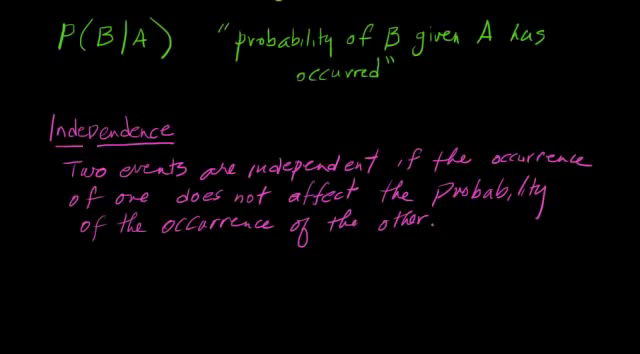 P(B|A) "probability of B given A has
occurred"
Independence
Two events are independent if the occurrence
of one does not affect the Probability
of the occurrence of the other.